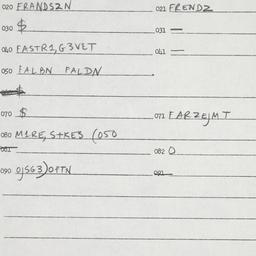 020 FRANDS2N 021 FRENDZ
030 $ 031 —
040 FASTR1,G3VET 041 —
050 FALBN FALDN
$
070 $ 071 FARZEJMT
080 M1RE,S+KES (050
081 082 O
090 091